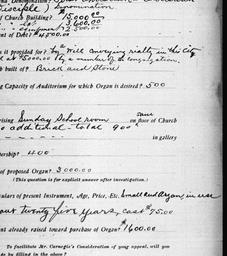 Denomination?
Disciple) Denomination
f Church Building? $15,000.00
" " Lot? 3,600.00
" equipment? 2,500.00
nt of Debt? $4500.00
is it provided for? by a Will conveying realty in this City
at $5000.00 by a member of the congregation.
built of? Brick and Stone
g Capacity of Auditorium for which Organ is desired? 500
rising Sunday School room on same floor of Church
o additional - total 900
in gallery
bership? 400
of proposed Organ? 3,000.00
(This question is for explicit answer after investigation.)
culars of present Instrument, Age, Price, Etc. Small reed Organ, in use
out twenty five years, cost $75.00
nt already raised toward purchase of Organ? $1600.00
To facilitate Mr. Carnegie's Consideration of your appeal, will you
be filling in the above?